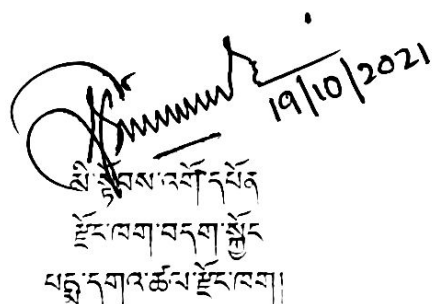 19/10/2021
སི་སྟོབས་འགོ་དཔོན
རྫོང་ཁག་བདག་སྐྱོང
པདྨ་དགའ་ཚལ་རྫོང་ཁག།